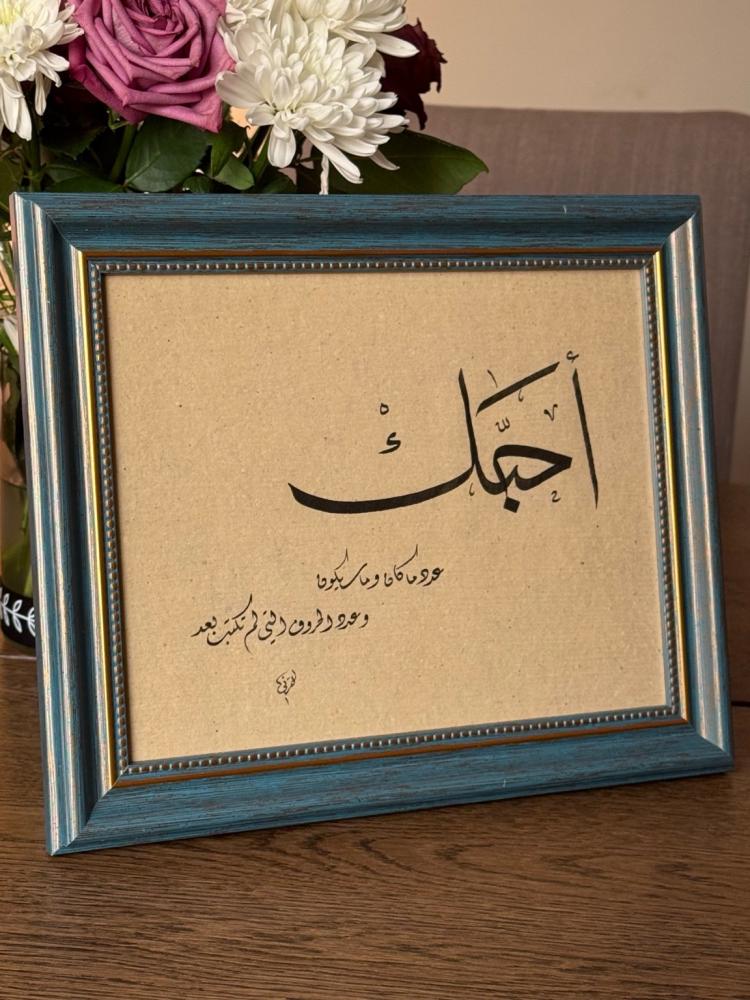 أحبّك
عدد ما كان وما سيكون
وعدد الحروف التي لم تكتب بعد